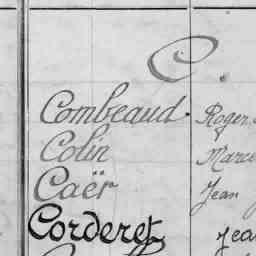 C.
Combeaud. Roger
Colin Marce
Caër Jean
Corderet Jea